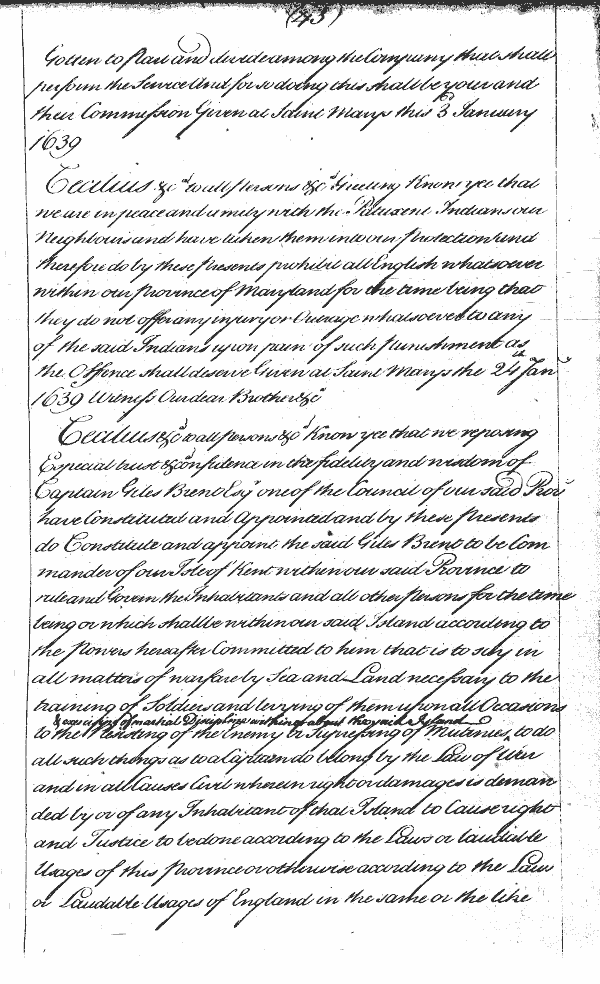 (43)
Gotten to Part and divide among the Company that shall
perform the Service And for so doing this shall be your and
their Commission Given at Saint Marys this 3d January
1639
Cecilius &ca to all Persons &ca Greeting Know yee that
we are in peace and amity with the Patuxent Indians our
Neighbours and have taken them into our Protection And
therefore do by these Presents prohibit all English whatsoever
within our Province of Maryland for the time being that
they do not offer any injury or Outrage whatsoever to any
of the said Indians upon pain of such Punishment as
the Offence shall deserve Given at Saint Marys the 24th Janry
1639 Witness Our dear Brother &ca
Cecilius &ca to all persons &ca Know yee that we reposing
Especial trust & confidence in the fidelity and wisdom of
Captain Giles Brent Esqr one of the Council of our said Prov
have Constituted and Appointed and by these Presents
do Constitute and appoint the said Giles Brent to be Com
mander of our Isle of Kent within our said Province to
rule and Govern the Inhabitants and all other Persons for the time
being or which shall be within our said Island according to
the Powers hereafter Committed to him that is to say in
all matters of warfare by Sea and Land necessary to the
training of Soldiers and levying of them upon all Occasions
& exercising of martial Discipline within or about the said Island
to the Resisting of the Enemy or Suppressing of Mutinies, to do
all such things as to a Captain do belong by the Law of War
and in all Causes Civil wherein right or damages is deman
ded by or of any Inhabitant of that Island to Cause right
and Justice to be done according to the Laws or laudable
Usages of this Province or otherwise according to the Laws
or Laudable Usages of England in the same or the like